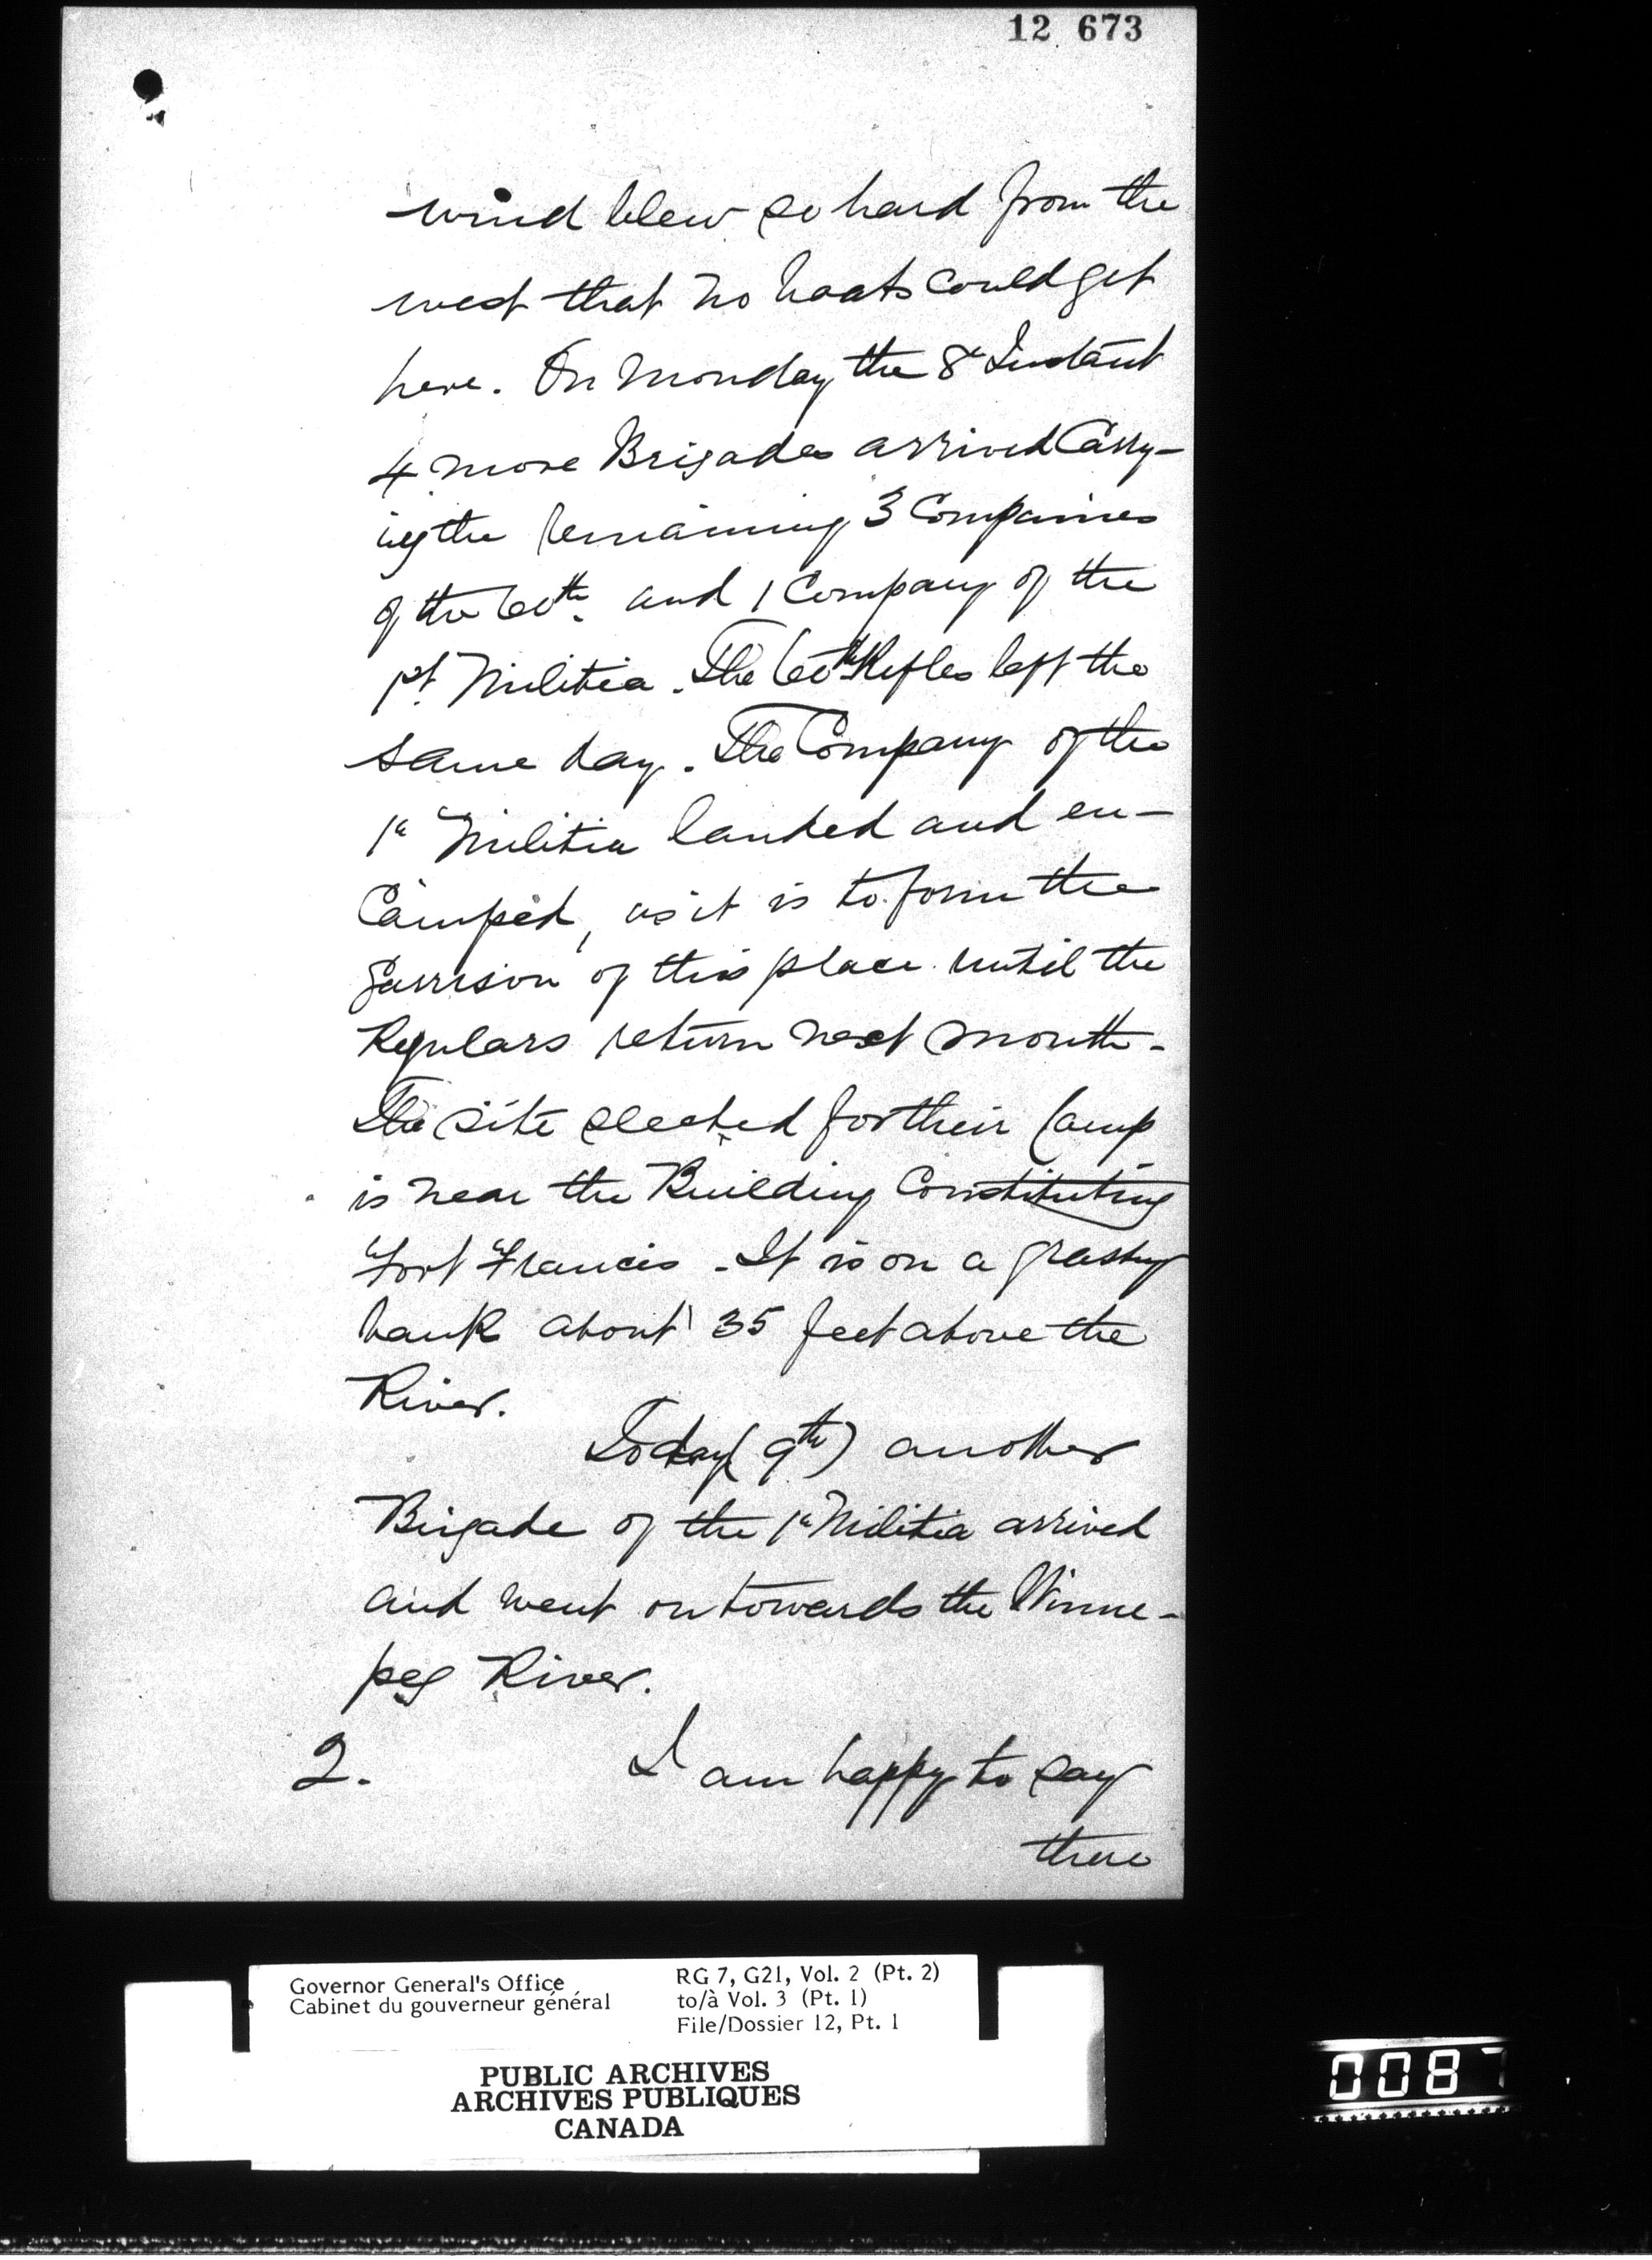 12 673
wind blew so hard from the
west that no boats could get
here. On Monday the 8th Instant
4 more Brigades arrived Carry-
ing the remaining 3 Companies
of the 60th. and 1 Company of the
1st. Militia. The 60th Rifles left the
same day. The Company of the
1st Militia landed and en-
Camped, as it is to form the
Garrison of this place until the
Regulars return next month.
The site selected for their Camp
is near the Building Constituting
Fort Francis. It is on a grassy
bank about 35 feet above the
River.
Today (9th) another
Brigade of the 1st Militia arrived
and went on towards the Winne-
peg River.
2. I am happy to say
there
Governor General's Office
Cabinet du gouverneur général
RG 7, G21, Vol. 2 (Pt. 2)
to/à Vol. 3 (Pt. 1)
File/Dossier 12, Pt. 1
PUBLIC ARCHIVES
ARCHIVES PUBLIQUES
CANADA
0087